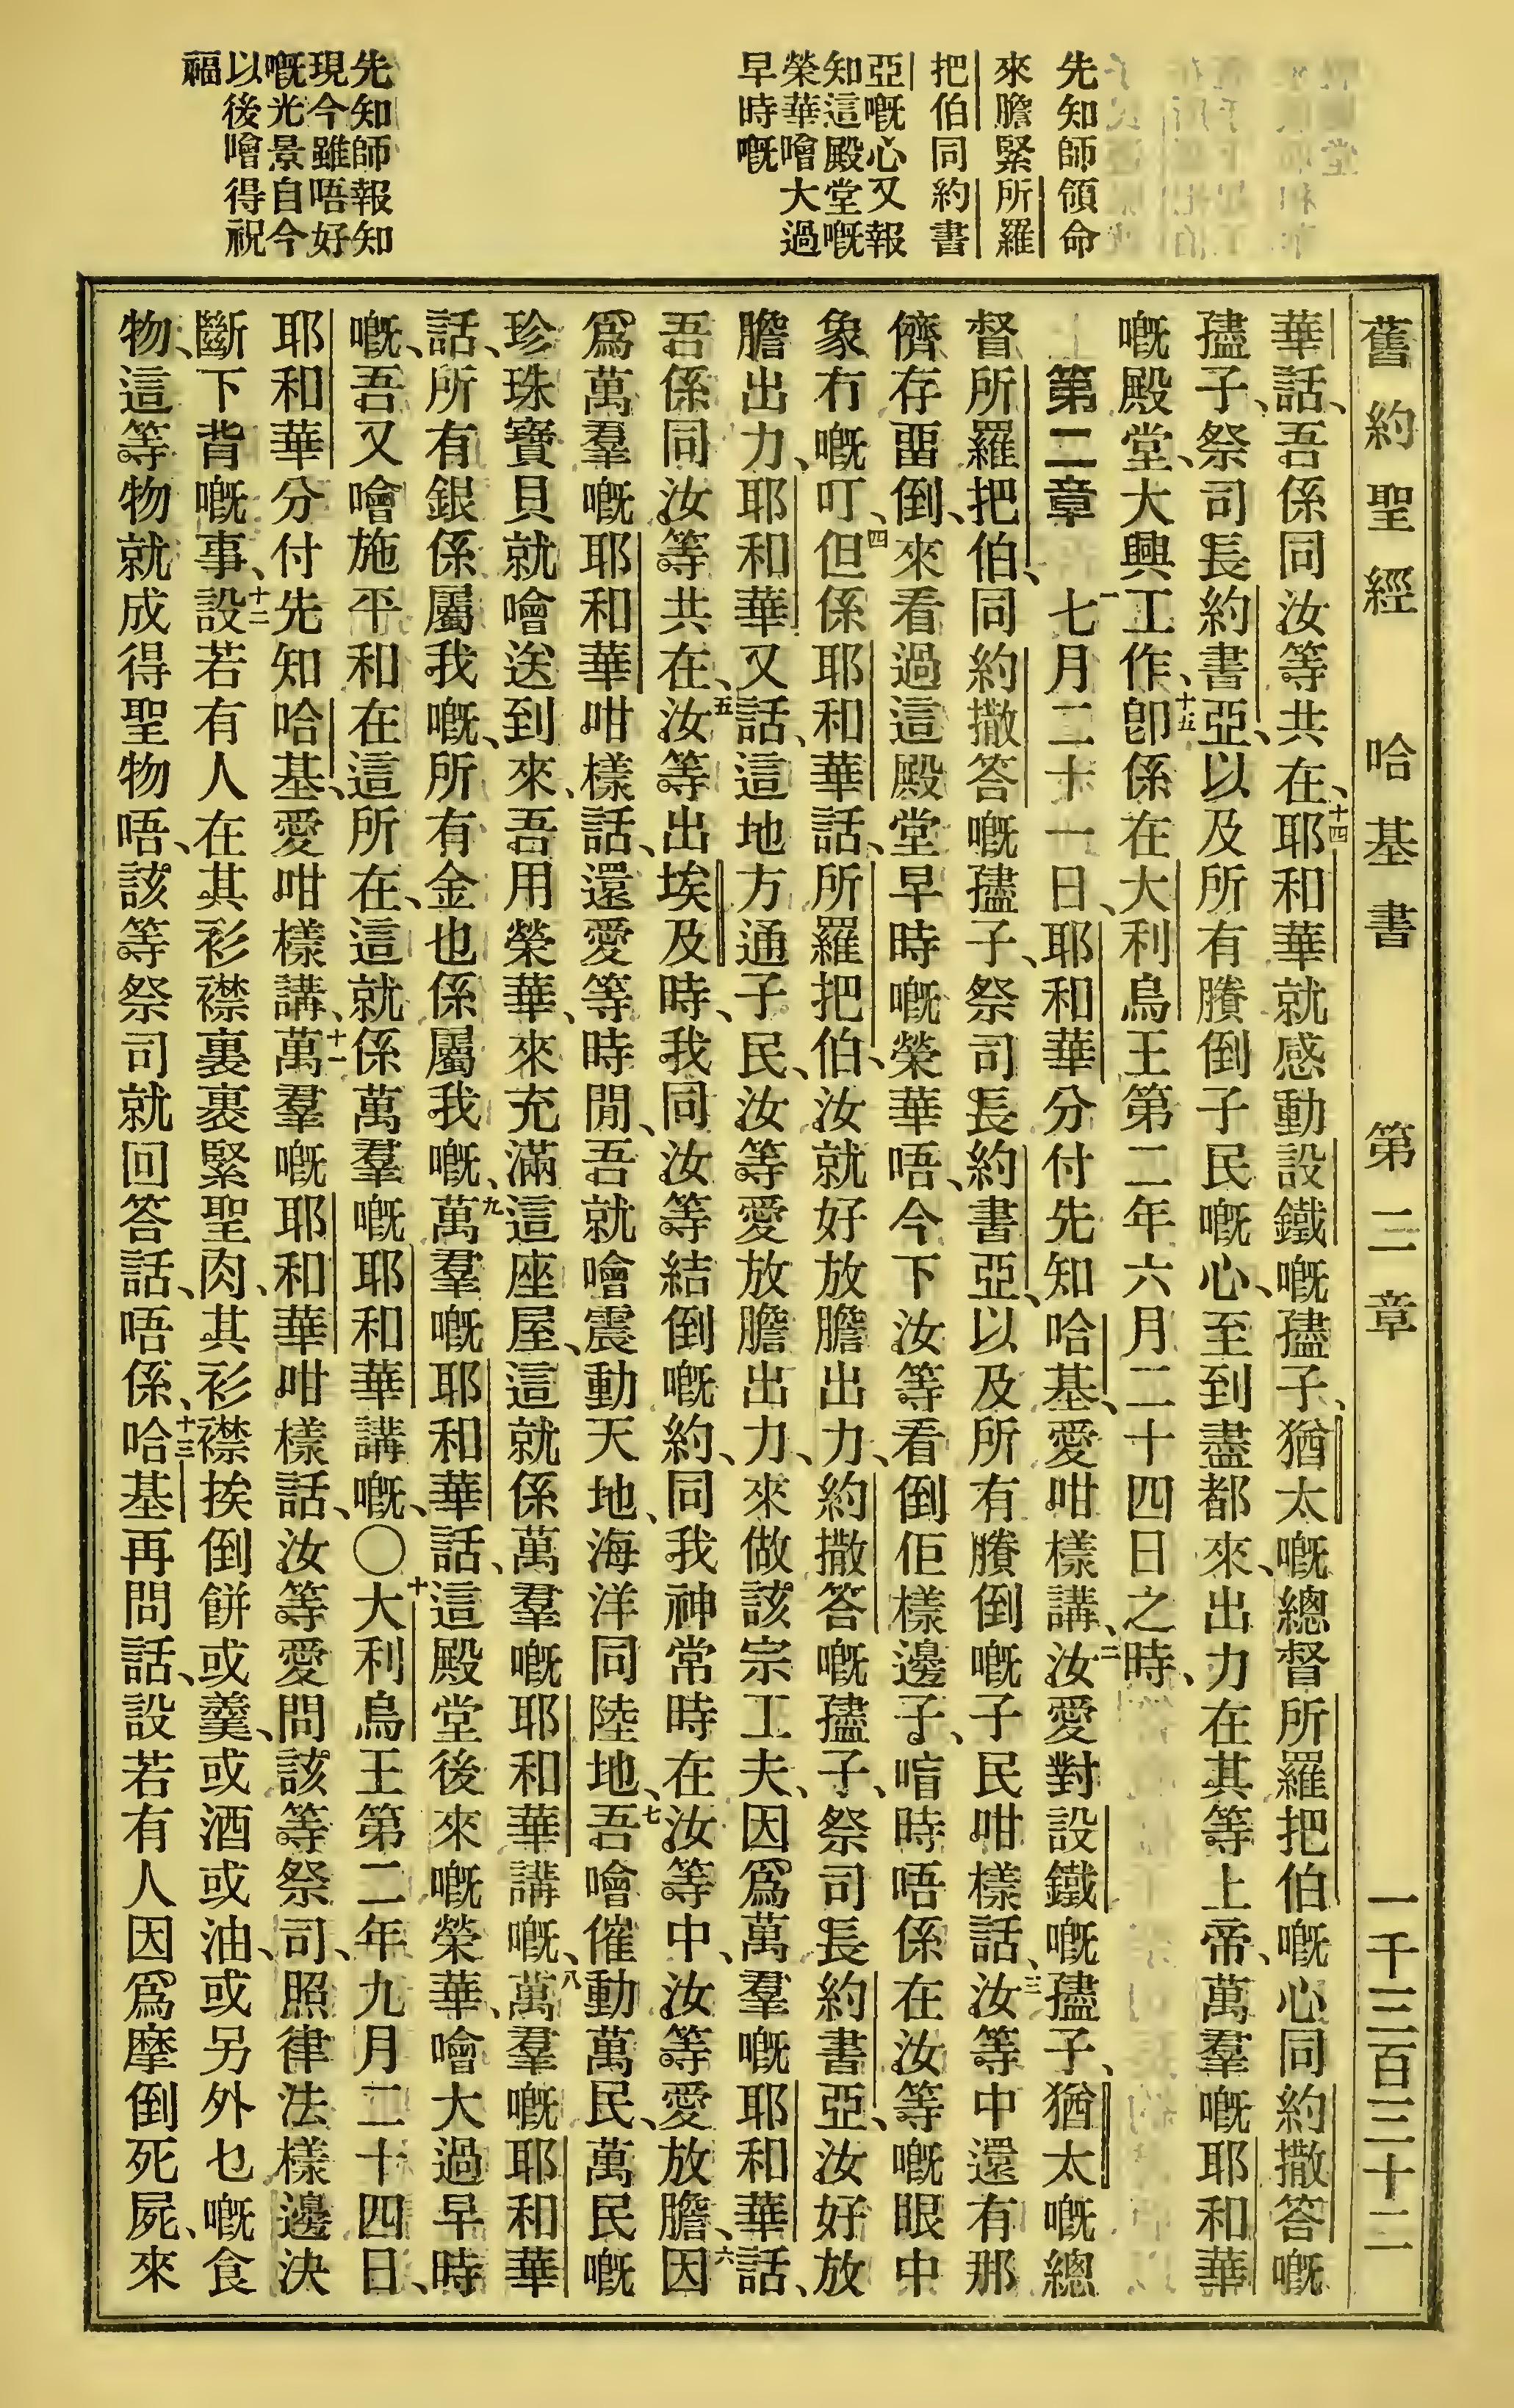 先知師領命
來膽緊所羅
把伯同約書
亞嘅心又報
知這殿堂嘅
榮華噲大過
早時嘅
先知師報知
現今雖唔好
嘅光景自今
以後噲得祝
福
舊約聖經 哈基書 第二章 一千三百三十二
華話、吾係同汝等共在、十四耶和華就感動設鐵嘅孻子、猶太嘅總督所羅把伯嘅心同約撒答嘅
孻子、祭司長約書亞、以及所有賸倒子民嘅心、至到盡都來、出力在其等上帝、萬羣嘅耶和華
嘅殿堂、大興工作、十五卽係在大利烏王第二年六月二十四日之時、
第二章 一七月二十一日、耶和華分付先知哈基、愛咁樣講、二汝愛對設鐵嘅孻子、猶太嘅總
督所羅把伯、同約撒答嘅孻子、祭司長約書亞、以及所有賸倒嘅子民咁樣話、三汝等中還有那
儕存畱倒、來看過這殿堂早時嘅榮華唔、今下汝等看倒佢樣邊子、喑時唔係在汝等嘅眼中
象冇嘅叮、四但係耶和華話、所羅把伯、汝就好放膽出力、約撒答嘅孻子、祭司長約書亞、汝好放
膽出力、耶和華又話、這地方通子民、汝等愛放膽出力、來做該宗工夫、因爲萬羣嘅耶和華話、
吾係同汝等共在、五汝等出埃及時、我同汝等結倒嘅約、同我神常時在汝等中、汝等愛放膽、六因
爲萬羣嘅耶和華咁樣話、還愛等時閒、吾就噲震動天地、海洋同陸地、七吾噲催動萬民、萬民嘅
珍珠寶貝就噲送到來、吾用榮華、來充滿這座屋、這就係萬羣嘅耶和華講嘅、八萬羣嘅耶和華
話、所有銀係屬我嘅、所有金也係屬我嘅、九萬羣嘅耶和華話、這殿堂後來嘅榮華、噲大過早時
嘅、吾又噲施平和在這所在、這就係萬羣嘅耶和華講嘅、〇十大利烏王第二年九月二十四日、
耶和華分付先知哈基、愛咁樣講、十一萬羣嘅耶和華咁樣話、汝等愛問該等祭司、照律法樣邊決
斷下背嘅事、十二設若有人在其衫襟裏裹緊聖肉、其衫襟挨倒餅或羹、或酒或油、或另外乜嘅食
物、這等物就成得聖物唔、該等祭司就回答話、唔係、十三哈基再問話、設若有人因爲摩倒死屍、來